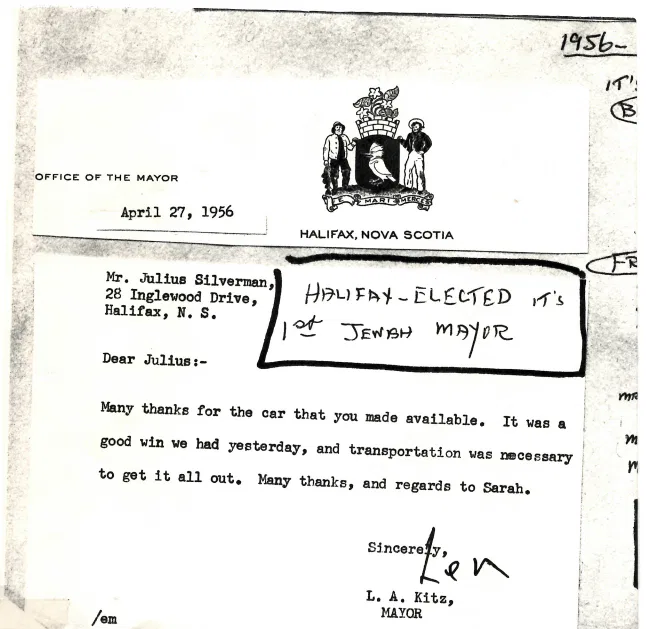 1956-
IT'S
OFFICE OF THE MAYOR
April 27, 1956
E MARI MERCES
HALIFAX, NOVA SCOTIA
Mr. Julius Silverman,
28 Inglewood Drive,
Halifax, N. S.
HALIFAX - ELECTED IT'S
1st JEWISH MAYOR
FR
Dear Julius:-
Many thanks for the car that you made available. It was a
good win we had yesterday, and transportation was necessary
to get it all out. Many thanks, and regards to Sarah.
Sincerely,
Len
L. A. Kitz,
MAYOR
/em